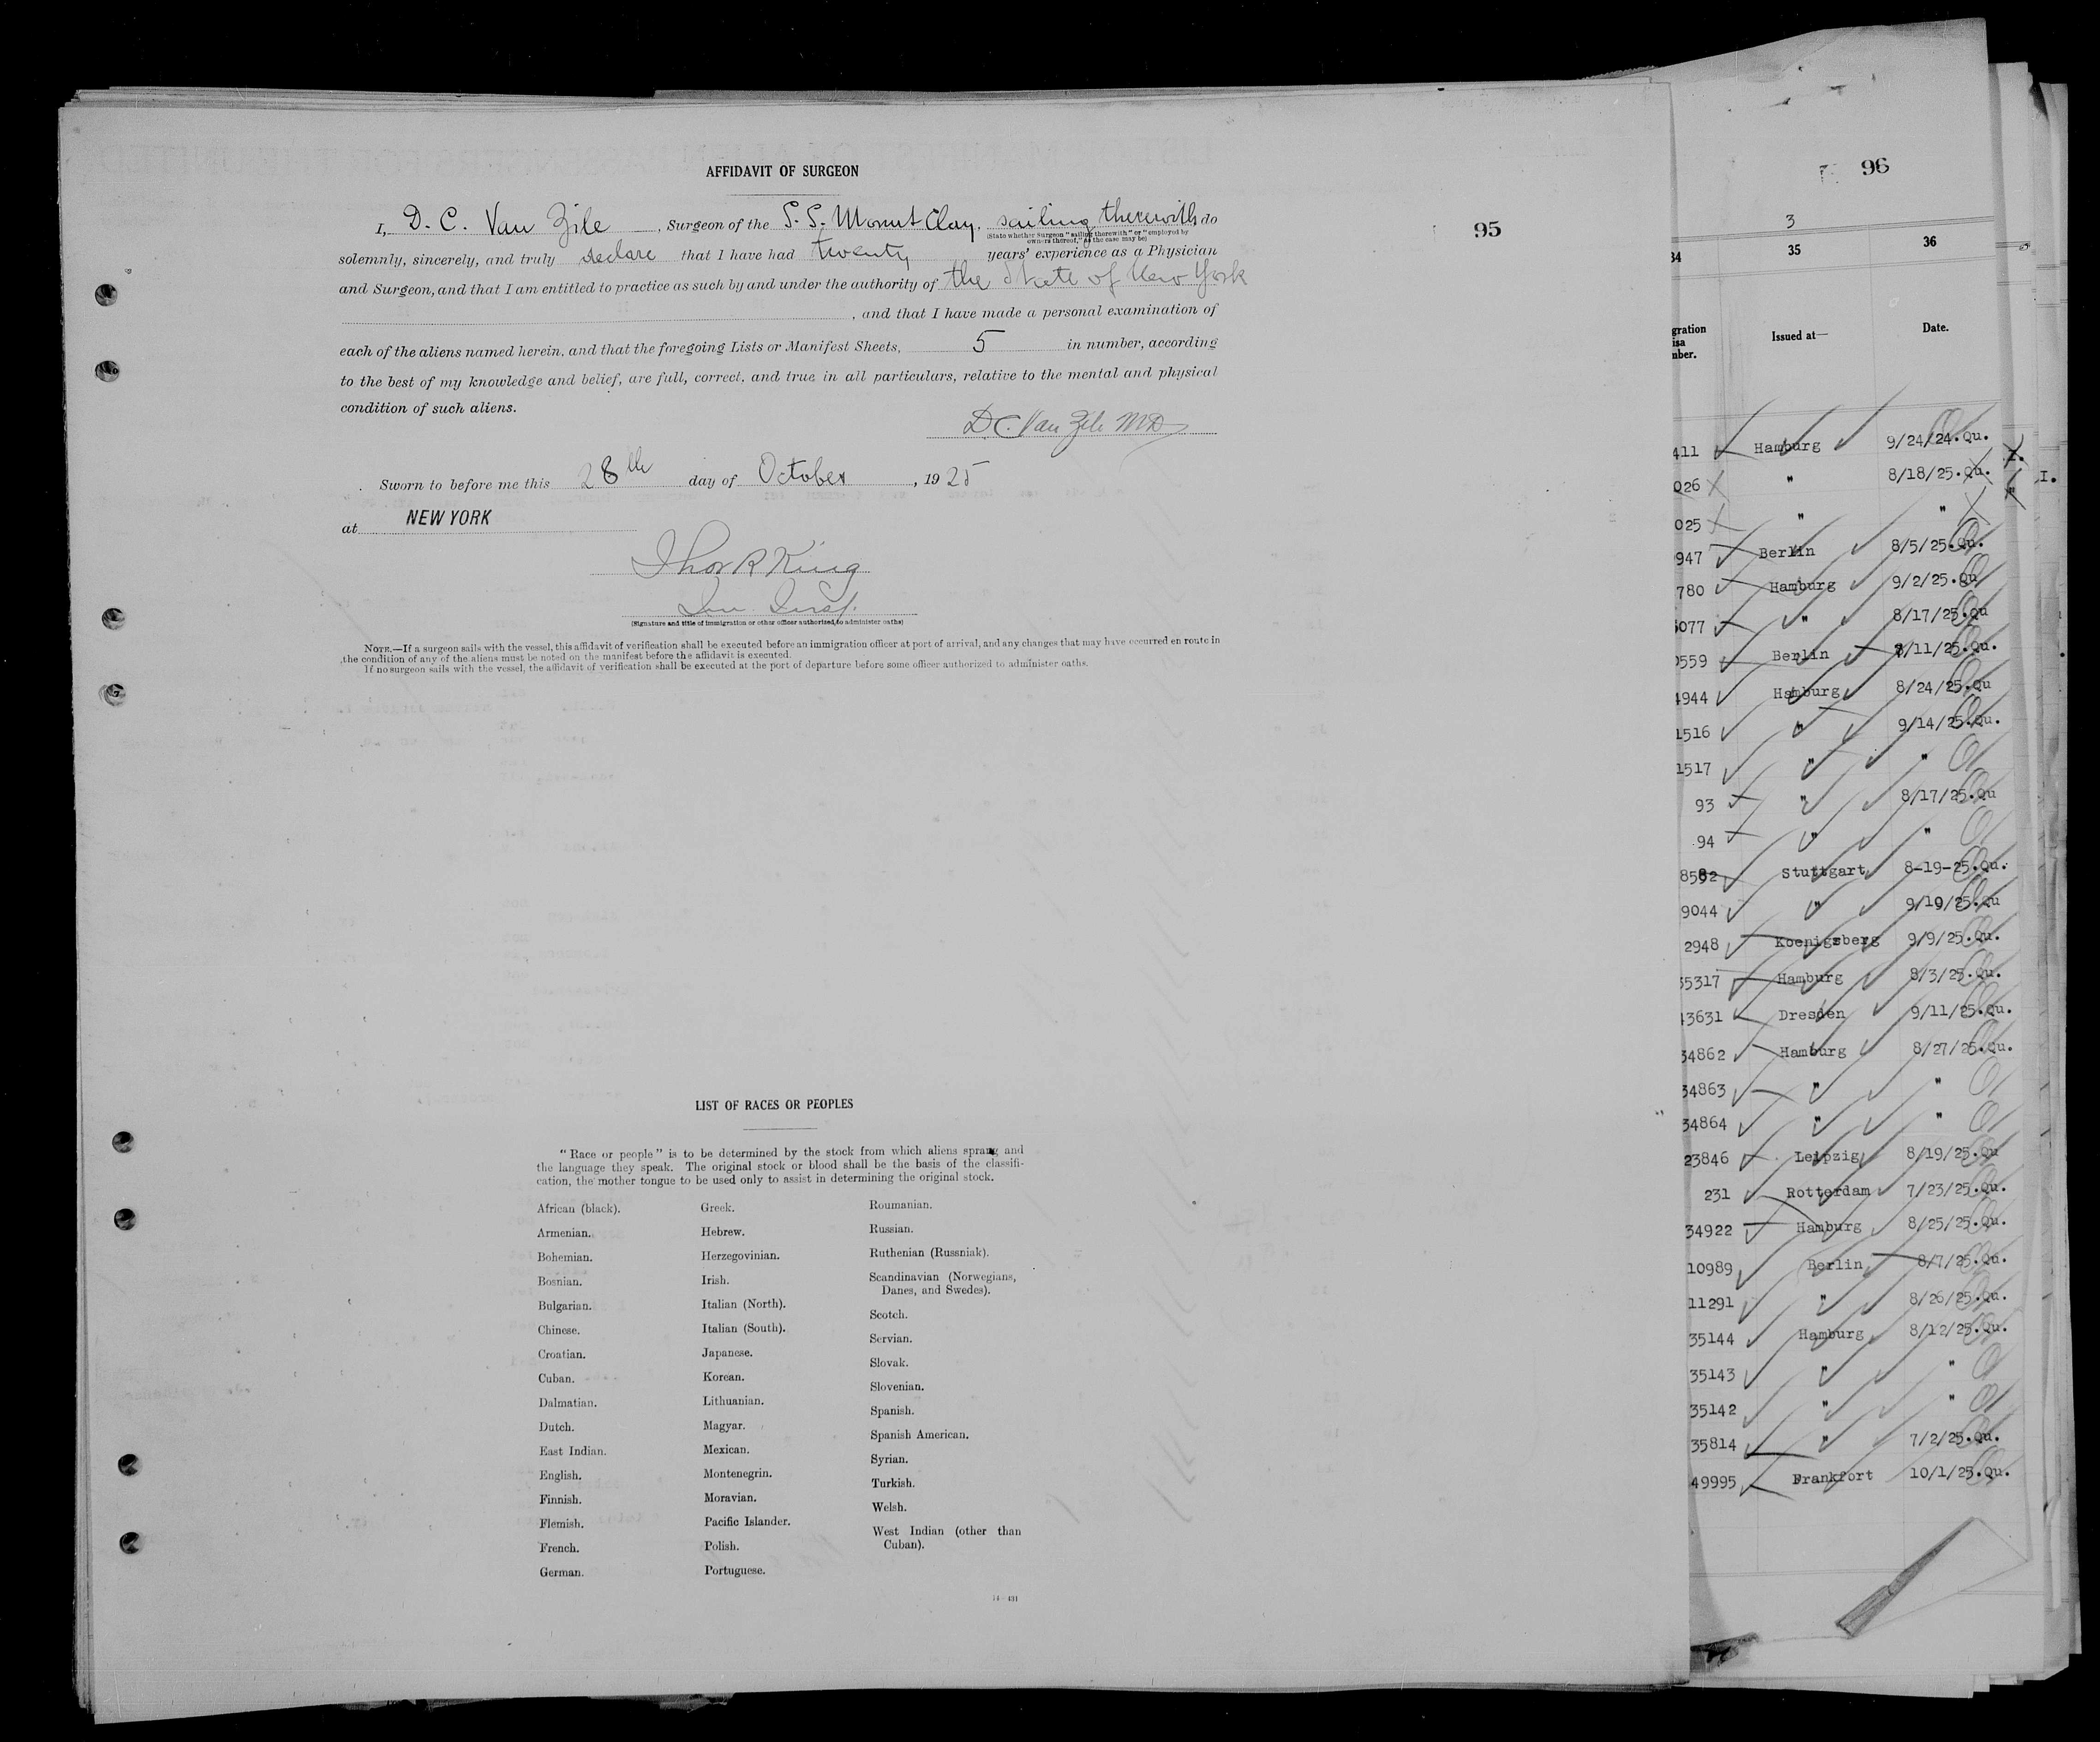 AFFIDAVIT OF SURGEON
95
I, D. C. Van Zile, Surgeon of the S. S. Mount Clay, sailing therewith, do
(State whether Surgeon "sailing therewith" or "employed by
owners thereof," as the case may be)
solemnly, sincerely, and truly declare that I have had twenty years' experience as a Physician
and Surgeon, and that I am entitled to practice as such by and under the authority of the State of New York
, and that I have made a personal examination of
each of the aliens named herein, and that the foregoing Lists or Manifest Sheets, 5 in number, according
to the best of my knowledge and belief, are full, correct, and true in all particulars, relative to the mental and physical
condition of such aliens.
D. C. Van Zile MD
Sworn to before me this 28th day of October, 1925
at NEW YORK
Thos R King
Imm. Insp.
(Signature and title of immigration or other officer authorized to administer oaths)
NOTE.—If a surgeon sails with the vessel, this affidavit of verification shall be executed before an immigration officer at port of arrival, and any changes that may have occurred en route in
the condition of any of the aliens must be noted on the manifest before the affidavit is executed.
If no surgeon sails with the vessel, the affidavit of verification shall be executed at the port of departure before some officer authorized to administer oaths.
LIST OF RACES OR PEOPLES
"Race or people" is to be determined by the stock from which aliens sprang and
the language they speak. The original stock or blood shall be the basis of the classifi-
cation, the mother tongue to be used only to assist in determining the original stock.
African (black).
Armenian.
Bohemian.
Bosnian.
Bulgarian.
Chinese.
Croatian.
Cuban.
Dalmatian.
Dutch.
East Indian.
English.
Finnish.
Flemish.
French.
German.
Greek.
Hebrew.
Herzegovinian.
Irish.
Italian (North).
Italian (South).
Japanese.
Korean.
Lithuanian.
Magyar.
Mexican.
Montenegrin.
Moravian.
Pacific Islander.
Polish.
Portuguese.
Roumanian.
Russian.
Ruthenian (Russniak).
Scandinavian (Norwegians,
Danes, and Swedes).
Scotch.
Servian.
Slovak.
Slovenian.
Spanish.
Spanish American.
Syrian.
Turkish.
Welsh.
West Indian (other than
Cuban).
14—431
96
3
34 35 36
gration
isa
mber.
Issued at—
Date.
411 Hamburg 9/24/24.Qu.
026 " 8/18/25.Qu.
025 " "
947 Berlin 8/5/25.Qu.
780 Hamburg 9/2/25.Qu
5077 " 8/17/25.Qu
0559 Berlin 8/11/25.Qu.
4944 Hamburg 8/24/25.Qu
1516 " 9/14/25.Qu.
1517 " "
93 " 8/17/25.Qu
94 " "
8582 Stuttgart 8-19-25.Qu.
9044 " 9/10/25.Qu
2948 Koenigsberg 9/9/25.Qu.
35317 Hamburg 8/3/25.Qu.
43631 Dresden 9/11/25.Qu.
34862 Hamburg 8/27/25.Qu.
34863 " "
34864 " "
23846 Leipzig 8/19/25.Qu
231 Rotterdam 7/23/25.Qu.
34922 Hamburg 8/25/25.Qu.
10989 Berlin 8/7/25.Qu.
11291 " 8/26/25.Qu.
35144 Hamburg 8/12/25.Qu.
35143 " "
35142 " "
35814 " 7/2/25.Qu.
49995 Frankfort 10/1/25.Qu.